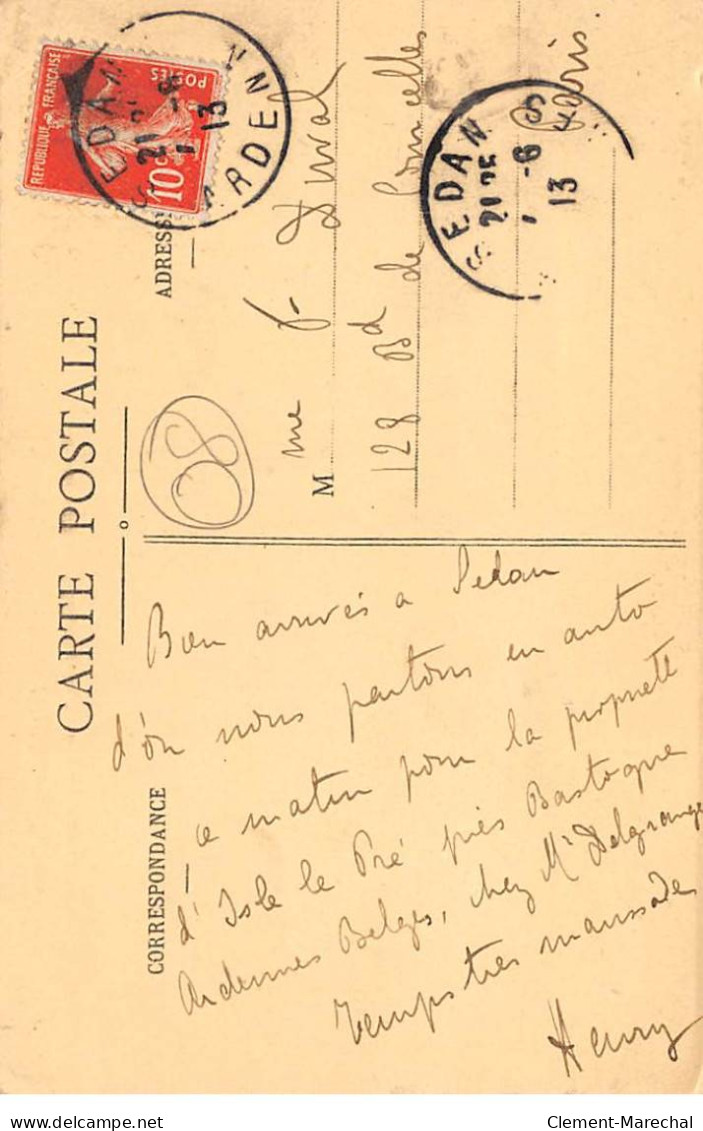 CARTE POSTALE
CORRESPONDANCE
ADRESSE
Bien arrivés a Sedan
d'où nous partons en auto
ce matin pour la propriété
d'Isle le Pré près Bastogne
Ardennes Belges, chez Mr Delgrange
temps très maussade
Henry
Mme J. Duval
128 Bd de Courcelles
Paris
08
REPUBLIQUE FRANÇAISE
POSTES
10
SEDAN
21
-6
13
ARDEN
SEDAN
21 25
-6
13
delcampe.net
Clement-Marechal